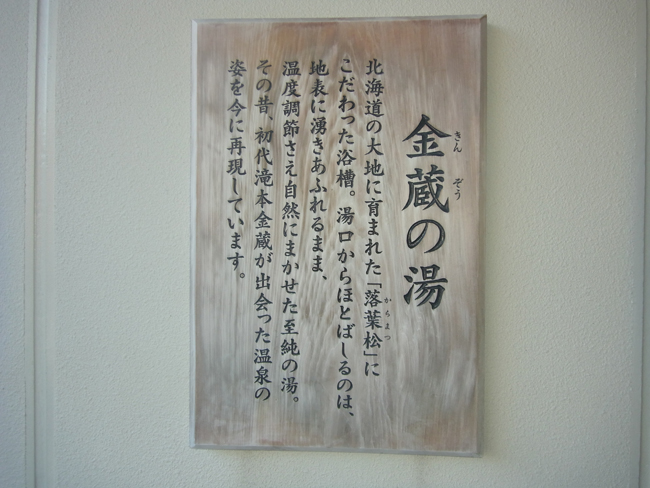 金蔵の湯
きん ぞう
北海道の大地に育まれた「落葉松」に
からまつ
こだわった浴槽。湯口からほとばしるのは、
地表に湧きあふれるまま、
温度調節さえ自然にまかせた至純の湯。
その昔、初代滝本金蔵が出会った温泉の
姿を今に再現しています。